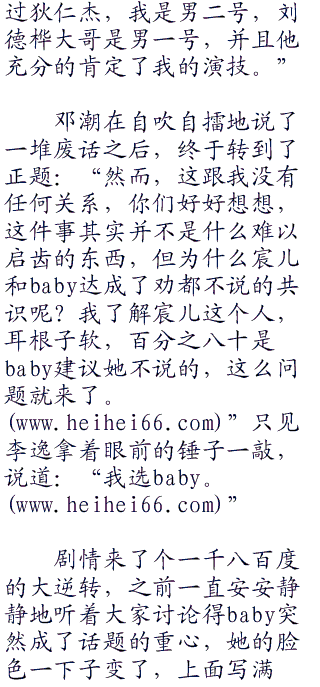 过狄仁杰，我是男二号，刘
德桦大哥是男一号，并且他
充分的肯定了我的演技。”
邓潮在自吹自擂地说了
一堆废话之后，终于转到了
正题：“然而，这跟我没有
任何关系，你们好好想想，
这件事其实并不是什么难以
启齿的东西，但为什么宸儿
和baby达成了劝都不说的共
识呢？我了解宸儿这个人，
耳根子软，百分之八十是
baby建议她不说的，这么问
题就来了。
(www.heihei66.com)”只见
李逸拿着眼前的锤子一敲，
说道：“我选baby。
(www.heihei66.com)”
剧情来了个一千八百度
的大逆转，之前一直安安静
静地听着大家讨论得baby突
然成了话题的重心，她的脸
色一下子变了，上面写满